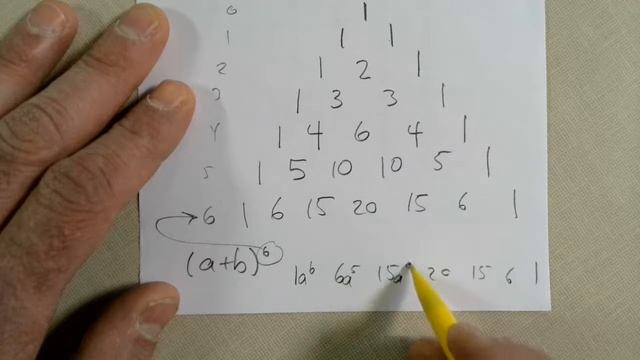 0 1
1 1 1
2 1 2 1
3 1 3 3 1
4 1 4 6 4 1
5 1 5 10 10 5 1
6 1 6 15 20 15 6 1
(a+b)⁶ 1a⁶ 6a⁵ 15a 20 15 6 1